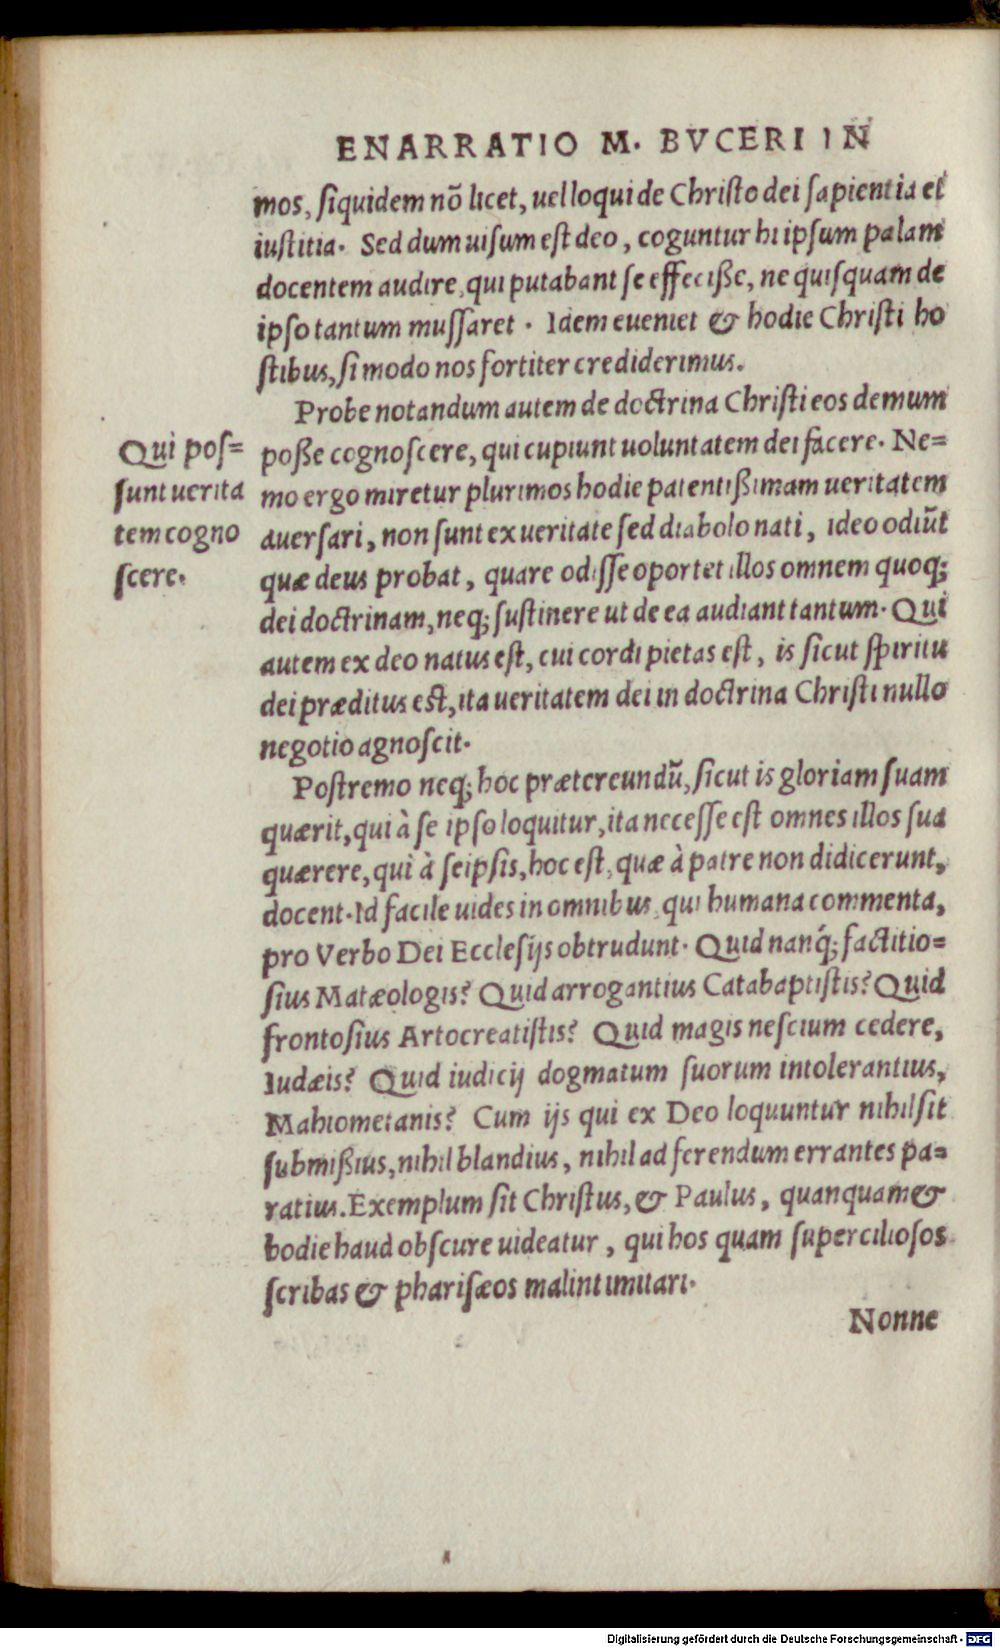 ENARRATIO M. BVCERI IN
mos, ſiquidem nõ licet, uel loqui de Chriſto dei ſapientia et
iuſtitia. Sed dum uiſum eſt deo, coguntur hi ipſum palam
docentem audire, qui putabant ſe effeciße, ne quiſquam de
ipſo tantum muſſaret. Idem eueniet & hodie Chriſti ho
ſtibus, ſi modo nos fortiter crediderimus.
Probe notandum autem de doctrina Chriſti eos demum
Qui poſ=
ſunt uerita
tem cogno
ſcere.
poße cognoſcere, qui cupiunt uoluntatem dei facere. Ne=
mo ergo miretur plurimos hodie patentißimam ueritatem
auerſari, non ſunt ex ueritate ſed diabolo nati, ideo odiũt
quæ deus probat, quare odiſſe oportet illos omnem quoq;
dei doctrinam, neq; ſuſtinere ut de ea audiant tantum. Qui
autem ex deo natus eſt, cui cordi pietas eſt, is ſicut ſpiritu
dei præditus eſt, ita ueritatem dei in doctrina Chriſti nullo
negotio agnoſcit.
Poſtremo neq; hoc prætereundũ, ſicut is gloriam ſuam
quærit, qui à ſe ipſo loquitur, ita neceſſe eſt omnes illos ſua
quærere, qui à ſeipſis, hoc eſt, quæ à patre non didicerunt,
docent. Id facile uides in omnibus, qui humana commenta,
pro Verbo Dei Eccleſijs obtrudunt. Quid nanq́; factitio=
ſius Matæologis? Quid arrogantius Catabaptiſtis? Quid
frontoſius Artocreatiſtis? Quid magis neſcium cedere,
Iudæis? Quid iudicij dogmatum ſuorum intolerantius,
Mahiometanis? Cum ijs qui ex Deo loquuntur nihil ſit
ſubmißius, nihil blandius, nihil ad ferendum errantes pa=
ratius. Exemplum ſit Chriſtus, & Paulus, quanquam &
hodie haud obſcure uideatur, qui hos quam ſupercilioſos
ſcribas & phariſæos malint imitari.
Nonne
Digitalisierung gefördert durch die Deutsche Forschungsgemeinschaft - DFG